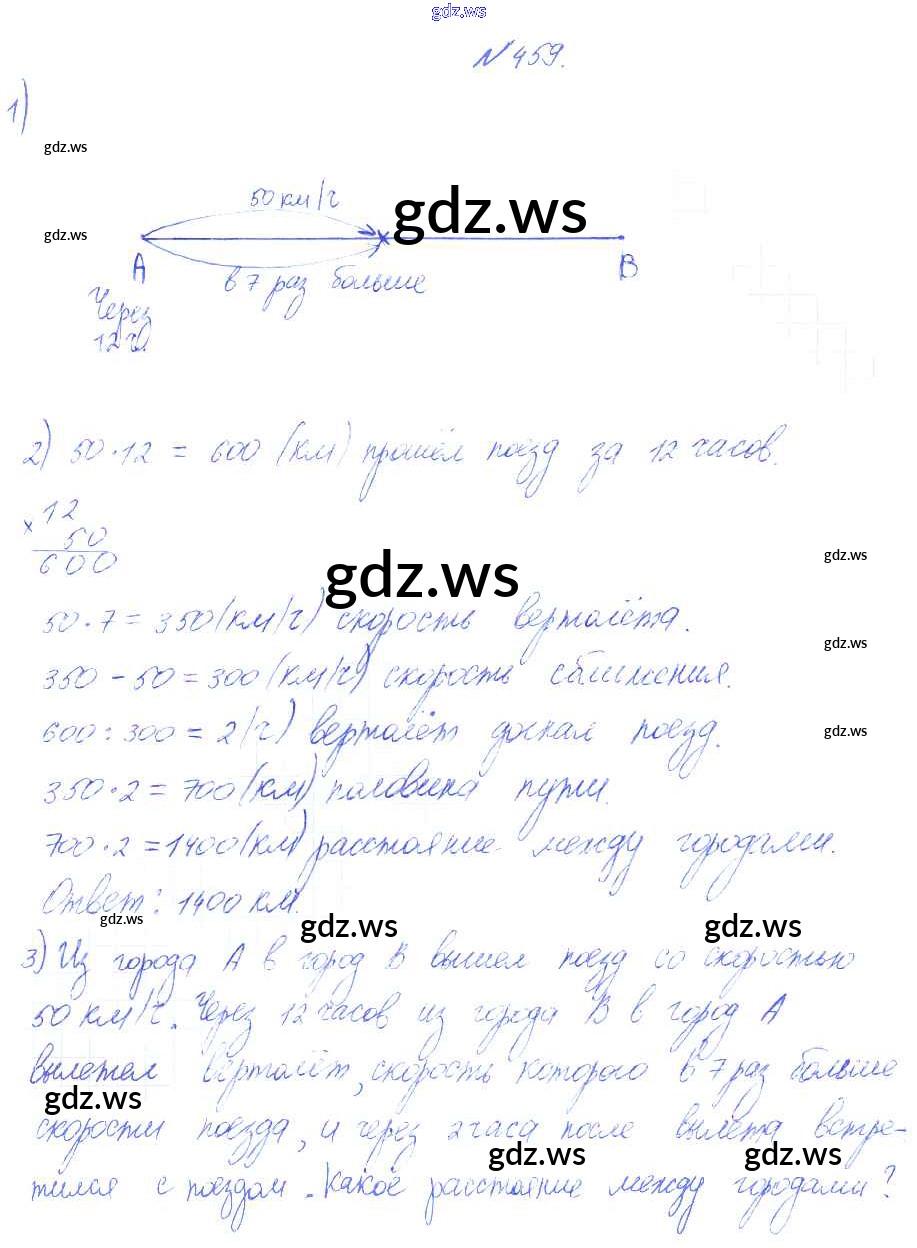 gdz.ws
№ 459.
1)
gdz.ws
50 км/ч
gdz.ws
gdz.ws
А
В
в 7 раз больше
Через
12 ч.
2) 50 · 12 = 600 (км) прошёл поезд за 12 часов.
× 12
50
600
gdz.ws
gdz.ws
50 · 7 = 350 (км/ч) скорость вертолёта.
gdz.ws
350 - 50 = 300 (км/ч) скорость сближения.
600 : 300 = 2 (ч) вертолёт догнал поезд.
gdz.ws
350 · 2 = 700 (км) половина пути.
700 · 2 = 1400 (км) расстояние между городами.
Ответ: 1400 км.
gdz.ws
gdz.ws
gdz.ws
3) Из города А в город В вышел поезд со скоростью
50 км/ч. Через 12 часов из города В в город А
вылетел вертолёт, скорость которого в 7 раз больше
gdz.ws
скорости поезда, и через 2 часа после вылета встре-
gdz.ws
gdz.ws
тился с поездом. Какое расстояние между городами?